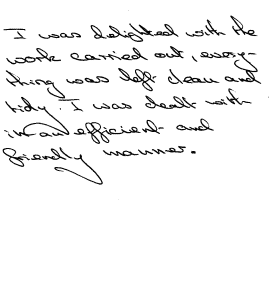 I was delighted with the
work carried out, every-
thing was left clean and
tidy. I was dealt with
in an efficient and
friendly manner.